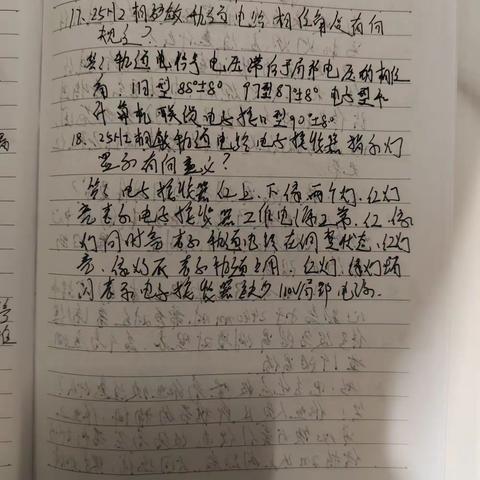 17、25Hz相敏轨道电路相位角度有何
规定？
答：轨道电信号电压滞后于局部电压的相位
角，旧型88°±8° 97型87°±8° 电子型和
计算机联锁电子接口型90°±8°
18、25Hz相敏轨道电路电子接收器指示灯
显示有何意义？
答：电子接收器红上、下绿两个灯、红灯
亮表示电子接收器工作电源正常、红、绿
灯同时亮表示轨道电路在调整状态、红灯
亮、绿灯灭表示轨道占用、红灯、绿灯均
闪表示电子接收器缺少110V局部电源.